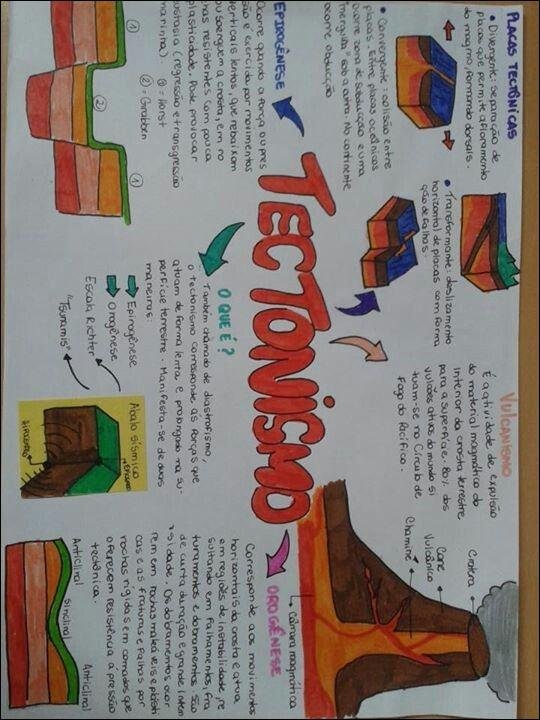 PLACAS TECTÔNICAS
• Divergente: separação de
placas que permite afloramento
do magma, formando dorsais.
• Convergente: colisão entre
placas. Entre placas oceânicas
ocorre zona de subducção e uma
"mergulha" sob a outra. No continente
ocorre obducção
• Transformante: deslizamento
horizontal de placas com forma
ção de falhas.
VULCANISMO
É a atividade de expulsão
do material magmático do
interior da crosta terrestre
para a superfície. 80% dos
vulcões ativos do mundo si
tuam-se no Círculo de
Fogo do Pacífico.
Cratera
Cone
Vulcânico
Chaminé
Câmara magmática
TECTONISMO
EPIROGÊNESE
Ocorre quando a força ou pres
são é exercida por movimentos
verticais lentos, que rebaixam
ou soerguem a crosta, em ro
chas resistentes com pouca
plasticidade. Pode provocar
eustasia (regressão e transgressão
marinha).
① = Horst
② = Graben
①
②
①
O QUE É?
Também chamado de diastrofismo,
o tectonismo corresponde às forças que
atuam de forma lenta e prolongada na su-
perfície terrestre. Manifesta-se de duas
maneiras:
Epirogênese
Orogênese
Escala Richter
"Tsunamis"
Abalo sísmico
EPICENTRO
HIPOCENTRO
OROGÊNESE
Corresponde aos movimentos
horizontais da crosta e atua
em regiões de instabilidade, re
sultando em falhamentos, fra
turamentos e dobramentos. São
de curta duração e grande inten
sidade. Os dobramentos ocor
rem em rochas maleáveis e plásti
cas e as fraturas e falhas por
rochas rígidas em camadas que
oferecem resistência à pressão
tectônica.
Anticlinal
Sinclinal
Anticlinal